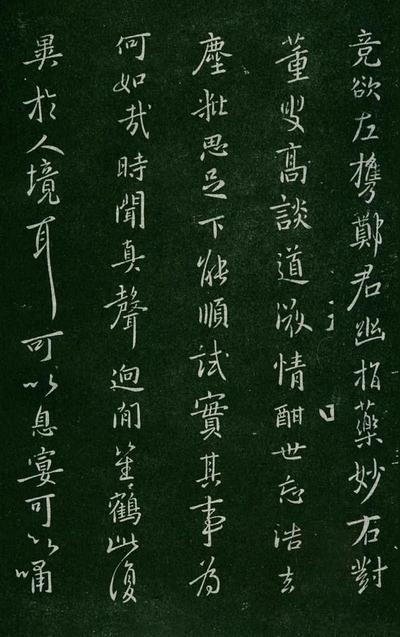 竟欲左攜鄭君幽指藥妙右對
董叟高談道激情酣世忘浩去
塵粃思足下能順試實其事為
何如哉時聞真聲迥聞笙鶴此復
異於人境耳可以息宴可以誦